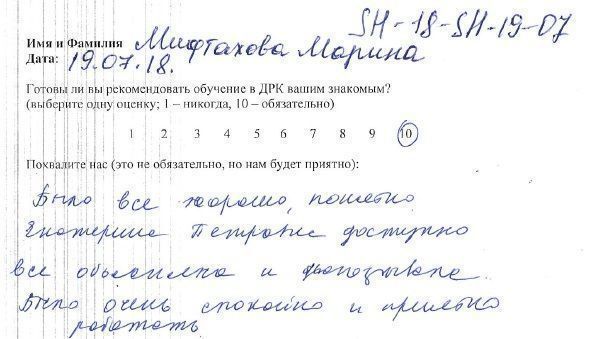 SH-18-SH-19-07
Имя и Фамилия Мифтахова Марина
Дата: 19.07.18.
Готовы ли вы рекомендовать обучение в ДРК вашим знакомым?
(выберите одну оценку; 1 – никогда, 10 – обязательно)
1 2 3 4 5 6 7 8 9 10
Похвалите нас (это не обязательно, но нам будет приятно):
Было все хорошо, понятно
Екатерина доступно
все объяснила и
Было очень спокойно и приятно
работать